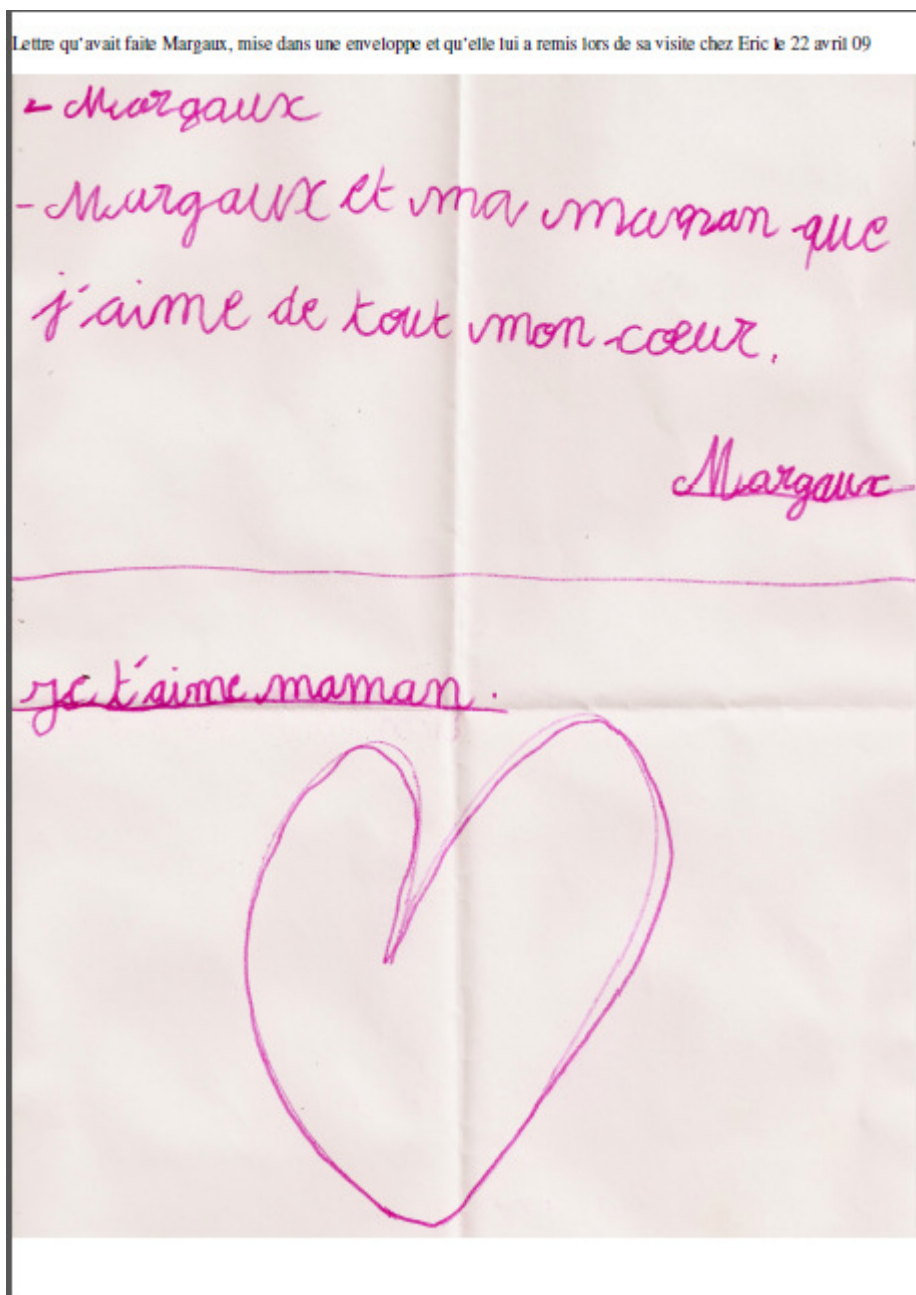 Lettre qu'avait faite Margaux, mise dans une enveloppe et qu'elle lui a remis lors de sa visite chez Eric le 22 avril 09
- Margaux
- Margaux et ma maman que
j'aime de tout mon cœur.
Margaux
je t'aime maman.